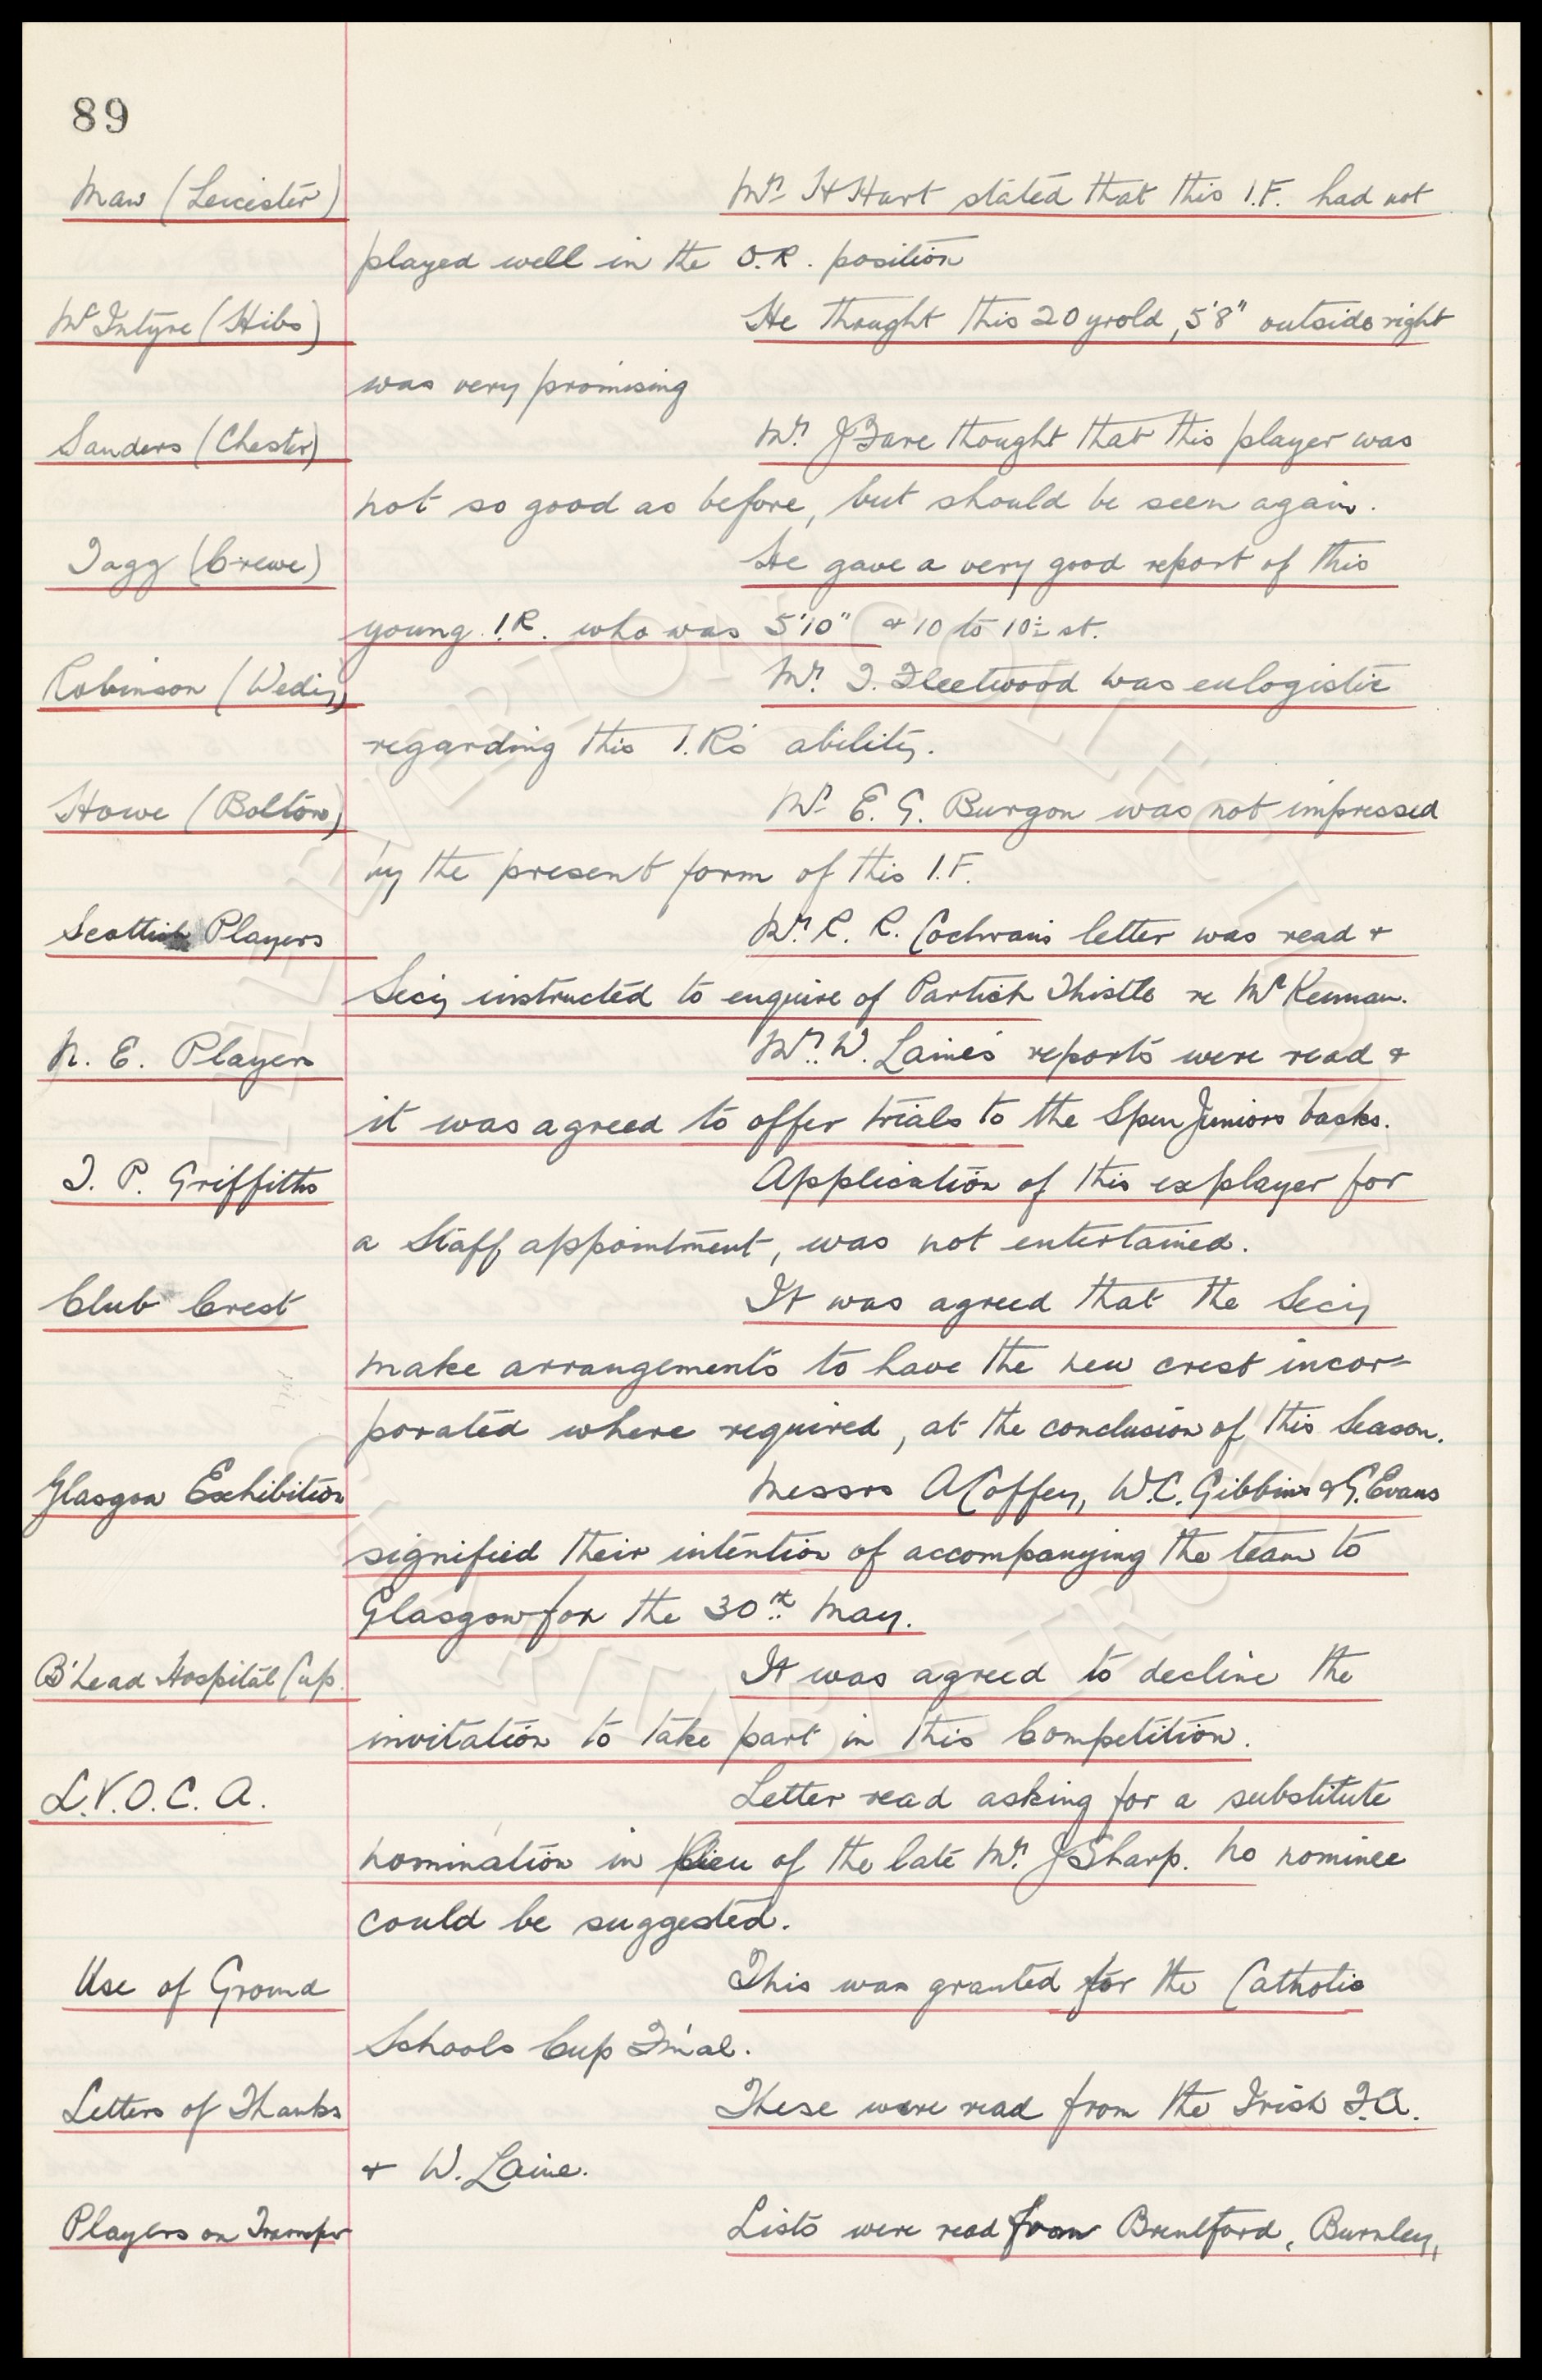 89
Maw (Leicester) Mr. H Hart stated that this I.F. had not
played well in the O.R. position
McIntyre (Hibs) He thought this 20 yrold, 5'8" outside right
was very promising
Sanders (Chester) Mr. J Fare thought that this player was
not so good as before, but should be seen again.
Tagg (Crewe) He gave a very good report of this
young I.R. who was 5'10" & 10 to 10½ st.
Robinson (Wedy) Mr. T. Fleetwood was eulogistic
regarding this I.R's ability.
Howe (Bolton) Mr. E. G. Burgon was not impressed
by the present form of this I.F.
Scottish Players Mr. R. R. Cochran's letter was read &
Secy instructed to enquire of Partick Thistle re McKennan.
N. E. Players Mr. W. Laine's reports were read &
it was agreed to offer trials to the Spen Juniors backs.
T. P. Griffiths Application of this explayer for
a Staff appointment, was not entertained.
Club Crest It was agreed that the Secy
make arrangements to have the new crest incor=
porated where required, at the conclusion of this Season.
Glasgow Exhibition Messrs A Coffey, W.C. Gibbins & G. Evans
signified their intention of accompanying the team to
Glasgow for the 30th May.
B'head Hospital Cup. It was agreed to decline the
invitation to take part in this Competition.
L.V.O.C.A. Letter read asking for a substitute
nomination in lieu of the late Mr. J Sharp. No nominee
could be suggested.
Use of Ground This was granted for the Catholic
Schools Cup Final.
Letters of Thanks These were read from the Irish F.A.
& W. Laine.
Players on Transfer Lists were read from Brentford, Burnley,